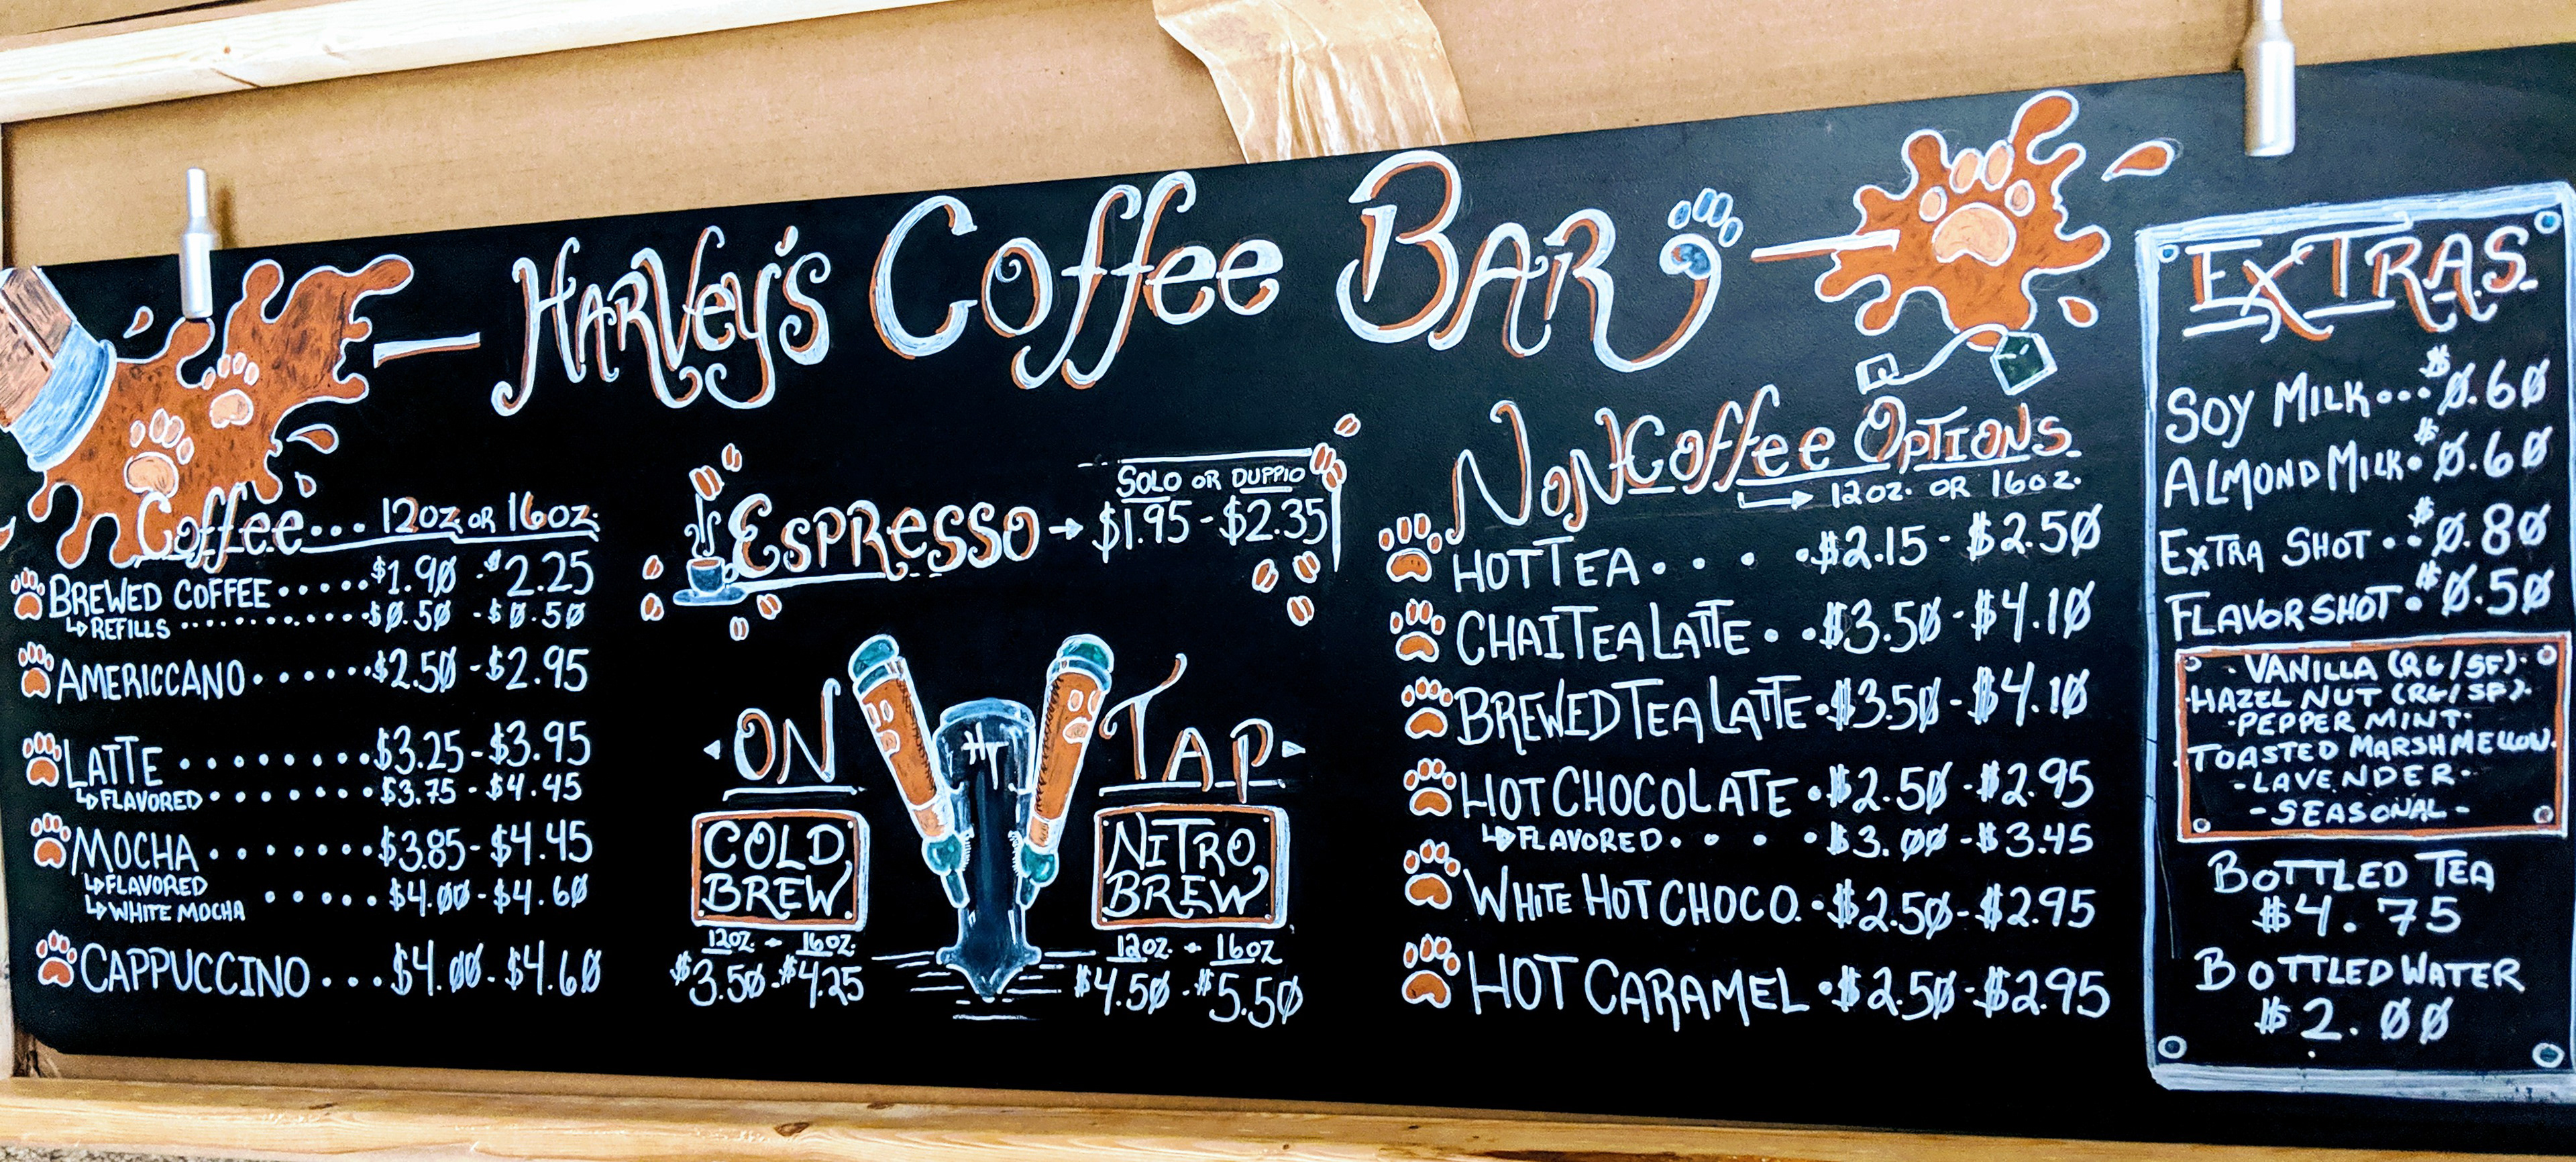 HARVEY'S COFFEE BAR
COFFEE... 12OZ OR 16OZ.
BREWED COFFEE ..... $1.90 - $2.25
REFILLS ............ $0.50 - $0.50
AMERICCANO ...... $2.50 - $2.95
LATTE ........ $3.25 - $3.95
FLAVORED ....... $3.75 - $4.45
MOCHA ....... $3.85 - $4.45
FLAVORED
WHITE MOCHA ..... $4.00 - $4.60
CAPPUCCINO ... $4.00 - $4.60
SOLO OR DUPPIO
ESPRESSO → $1.95 - $2.35
ON TAP
HT
COLD BREW
12OZ. - 16OZ.
$3.50 - $4.25
NITRO BREW
12OZ. - 16OZ
$4.50 - $5.50
NONCOFFEE OPTIONS
12OZ. OR 16OZ.
HOT TEA . . . . $2.15 - $2.50
CHAI TEA LATTE . . $3.50 - $4.10
BREWED TEA LATTE . $3.50 - $4.10
HOT CHOCOLATE . $2.50 - $2.95
FLAVORED . . . . $3.00 - $3.45
WHITE HOT CHOCO. . $2.50 - $2.95
HOT CARAMEL . $2.50 - $2.95
EXTRAS
SOY MILK... $0.60
ALMOND MILK. $0.60
EXTRA SHOT .. $0.80
FLAVOR SHOT . $0.50
· VANILLA (RG/SF) ·
· HAZEL NUT (RG/SF) ·
· PEPPER MINT ·
· TOASTED MARSHMELLOW ·
- LAVENDER -
- SEASONAL -
BOTTLED TEA
$4.75
BOTTLED WATER
$2.00